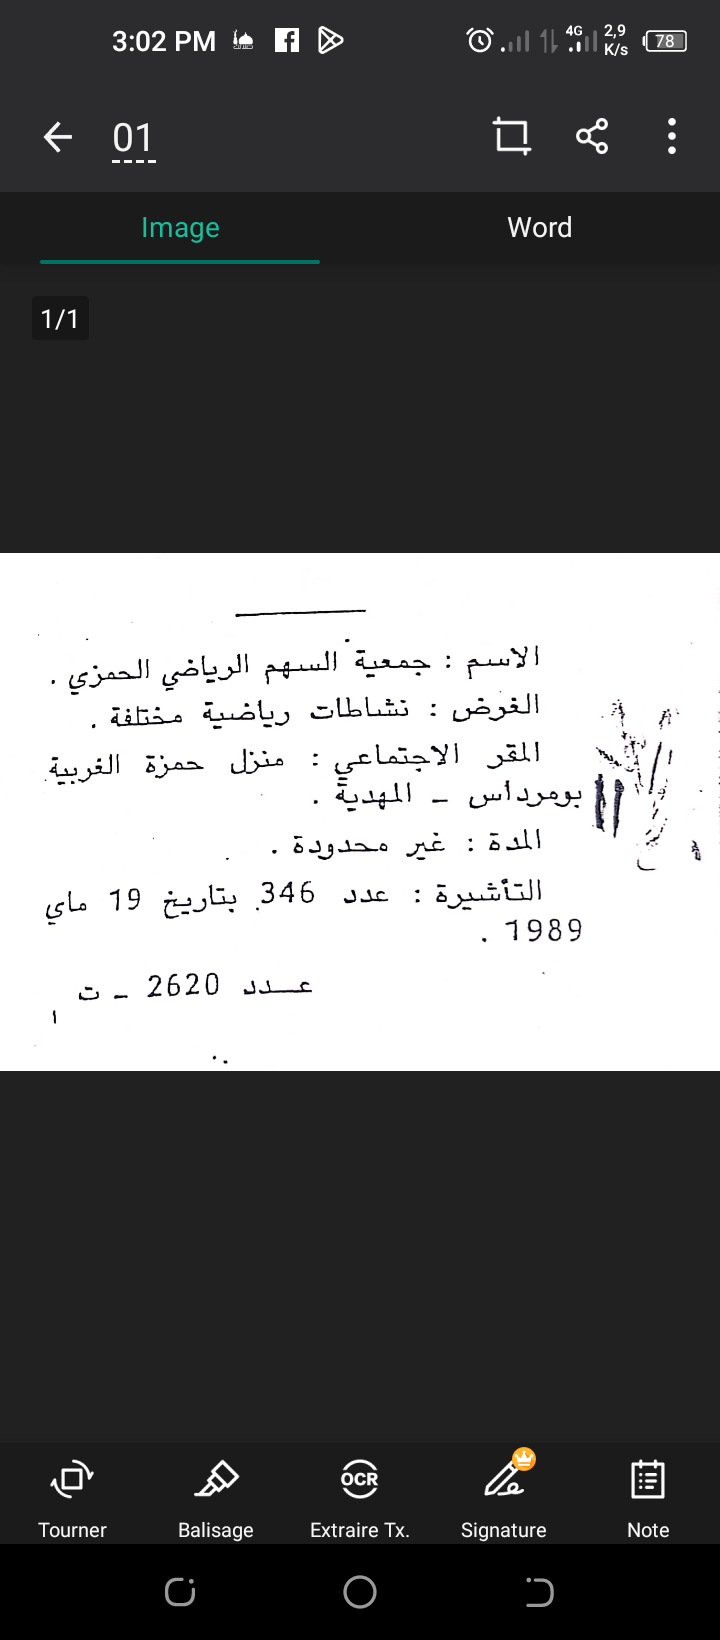 3:02 PM
4G 2,9 K/s 78
01
Image Word
1/1
الاسم : جمعية السهم الرياضي الحمزي .
الغرض : نشاطات رياضية مختلفة .
المقر الاجتماعي : منزل حمزة الغربية
بومرداس - المهدية .
المدة : غير محدودة .
التأشيرة : عدد 346 بتاريخ 19 ماي
1989 .
عـدد 2620 - ت
OCR
Tourner Balisage Extraire Tx. Signature Note